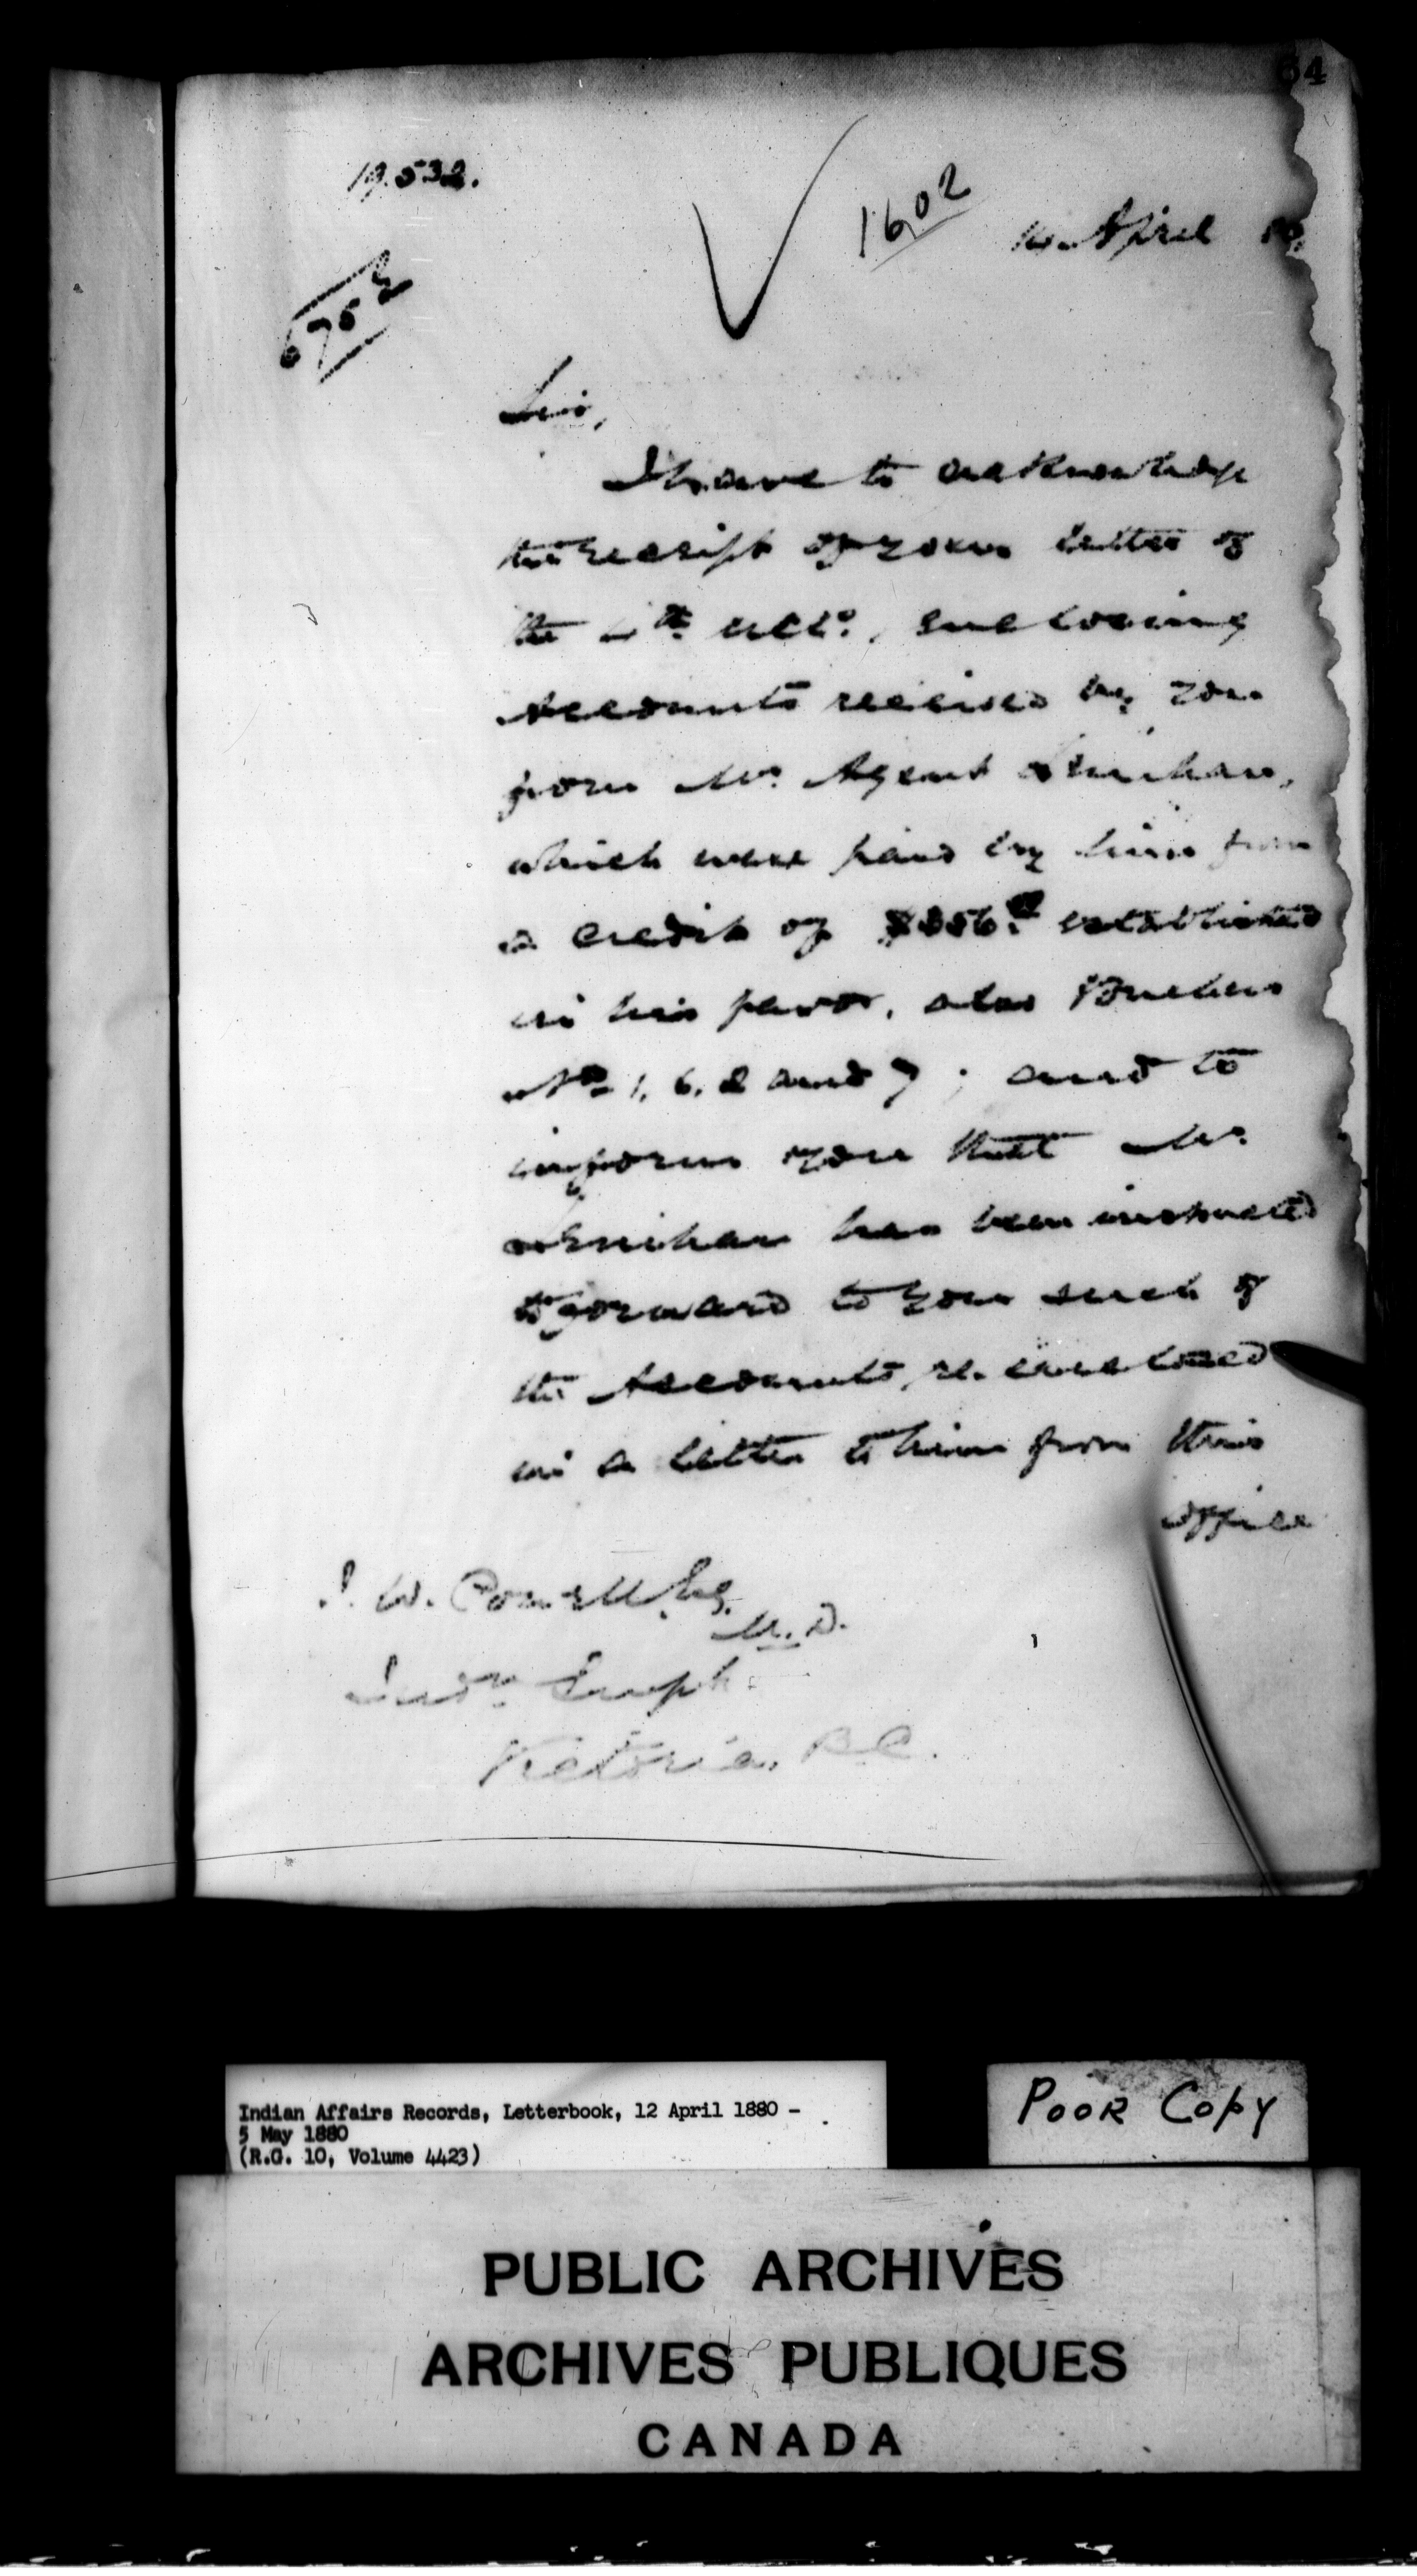 64
19.532.
1602
14 April 80,
6752
Sir,
I have to acknowledge
the receipt of your letter of
the 4th ulto., enclosing
Accounts received by you
from Mr. Agent Lenihan,
which were paid by him from
a credit of established
in his favor, also Vouchers
Nos 1, 6, 2 and 7 ; and to
inform you that Mr.
Lenihan has been instructed
to forward to you such of
the Accounts, re-enclosed
in a letter to him from this
office
I. W. Powell, Esq.
M.D.
Indn. Supt.
Victoria, B.C.
Indian Affairs Records, Letterbook, 12 April 1880 -
5 May 1880
(R.G. 10, Volume 4423)
POOR COPY
PUBLIC ARCHIVES
ARCHIVES PUBLIQUES
CANADA